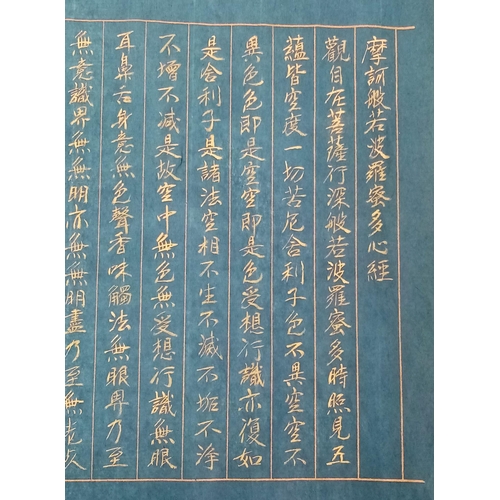 摩訶般若波羅蜜多心經
觀自在菩薩行深般若波羅蜜多時照見五
蘊皆空度一切苦厄舍利子色不異空空不
異色色即是空空即是色受想行識亦復如
是舍利子是諸法空相不生不滅不垢不淨
不增不減是故空中無色無受想行識無眼
耳鼻舌身意無色聲香味觸法無眼界乃至
無意識界無無明亦無無明盡乃至無老死